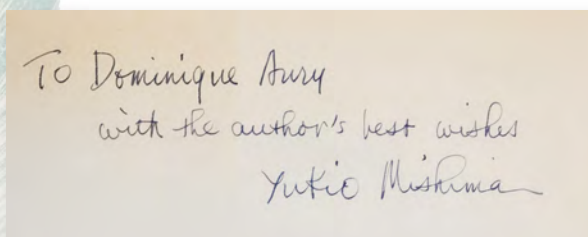 To Dominique Aury
with the author's best wishes
Yukio Mishima